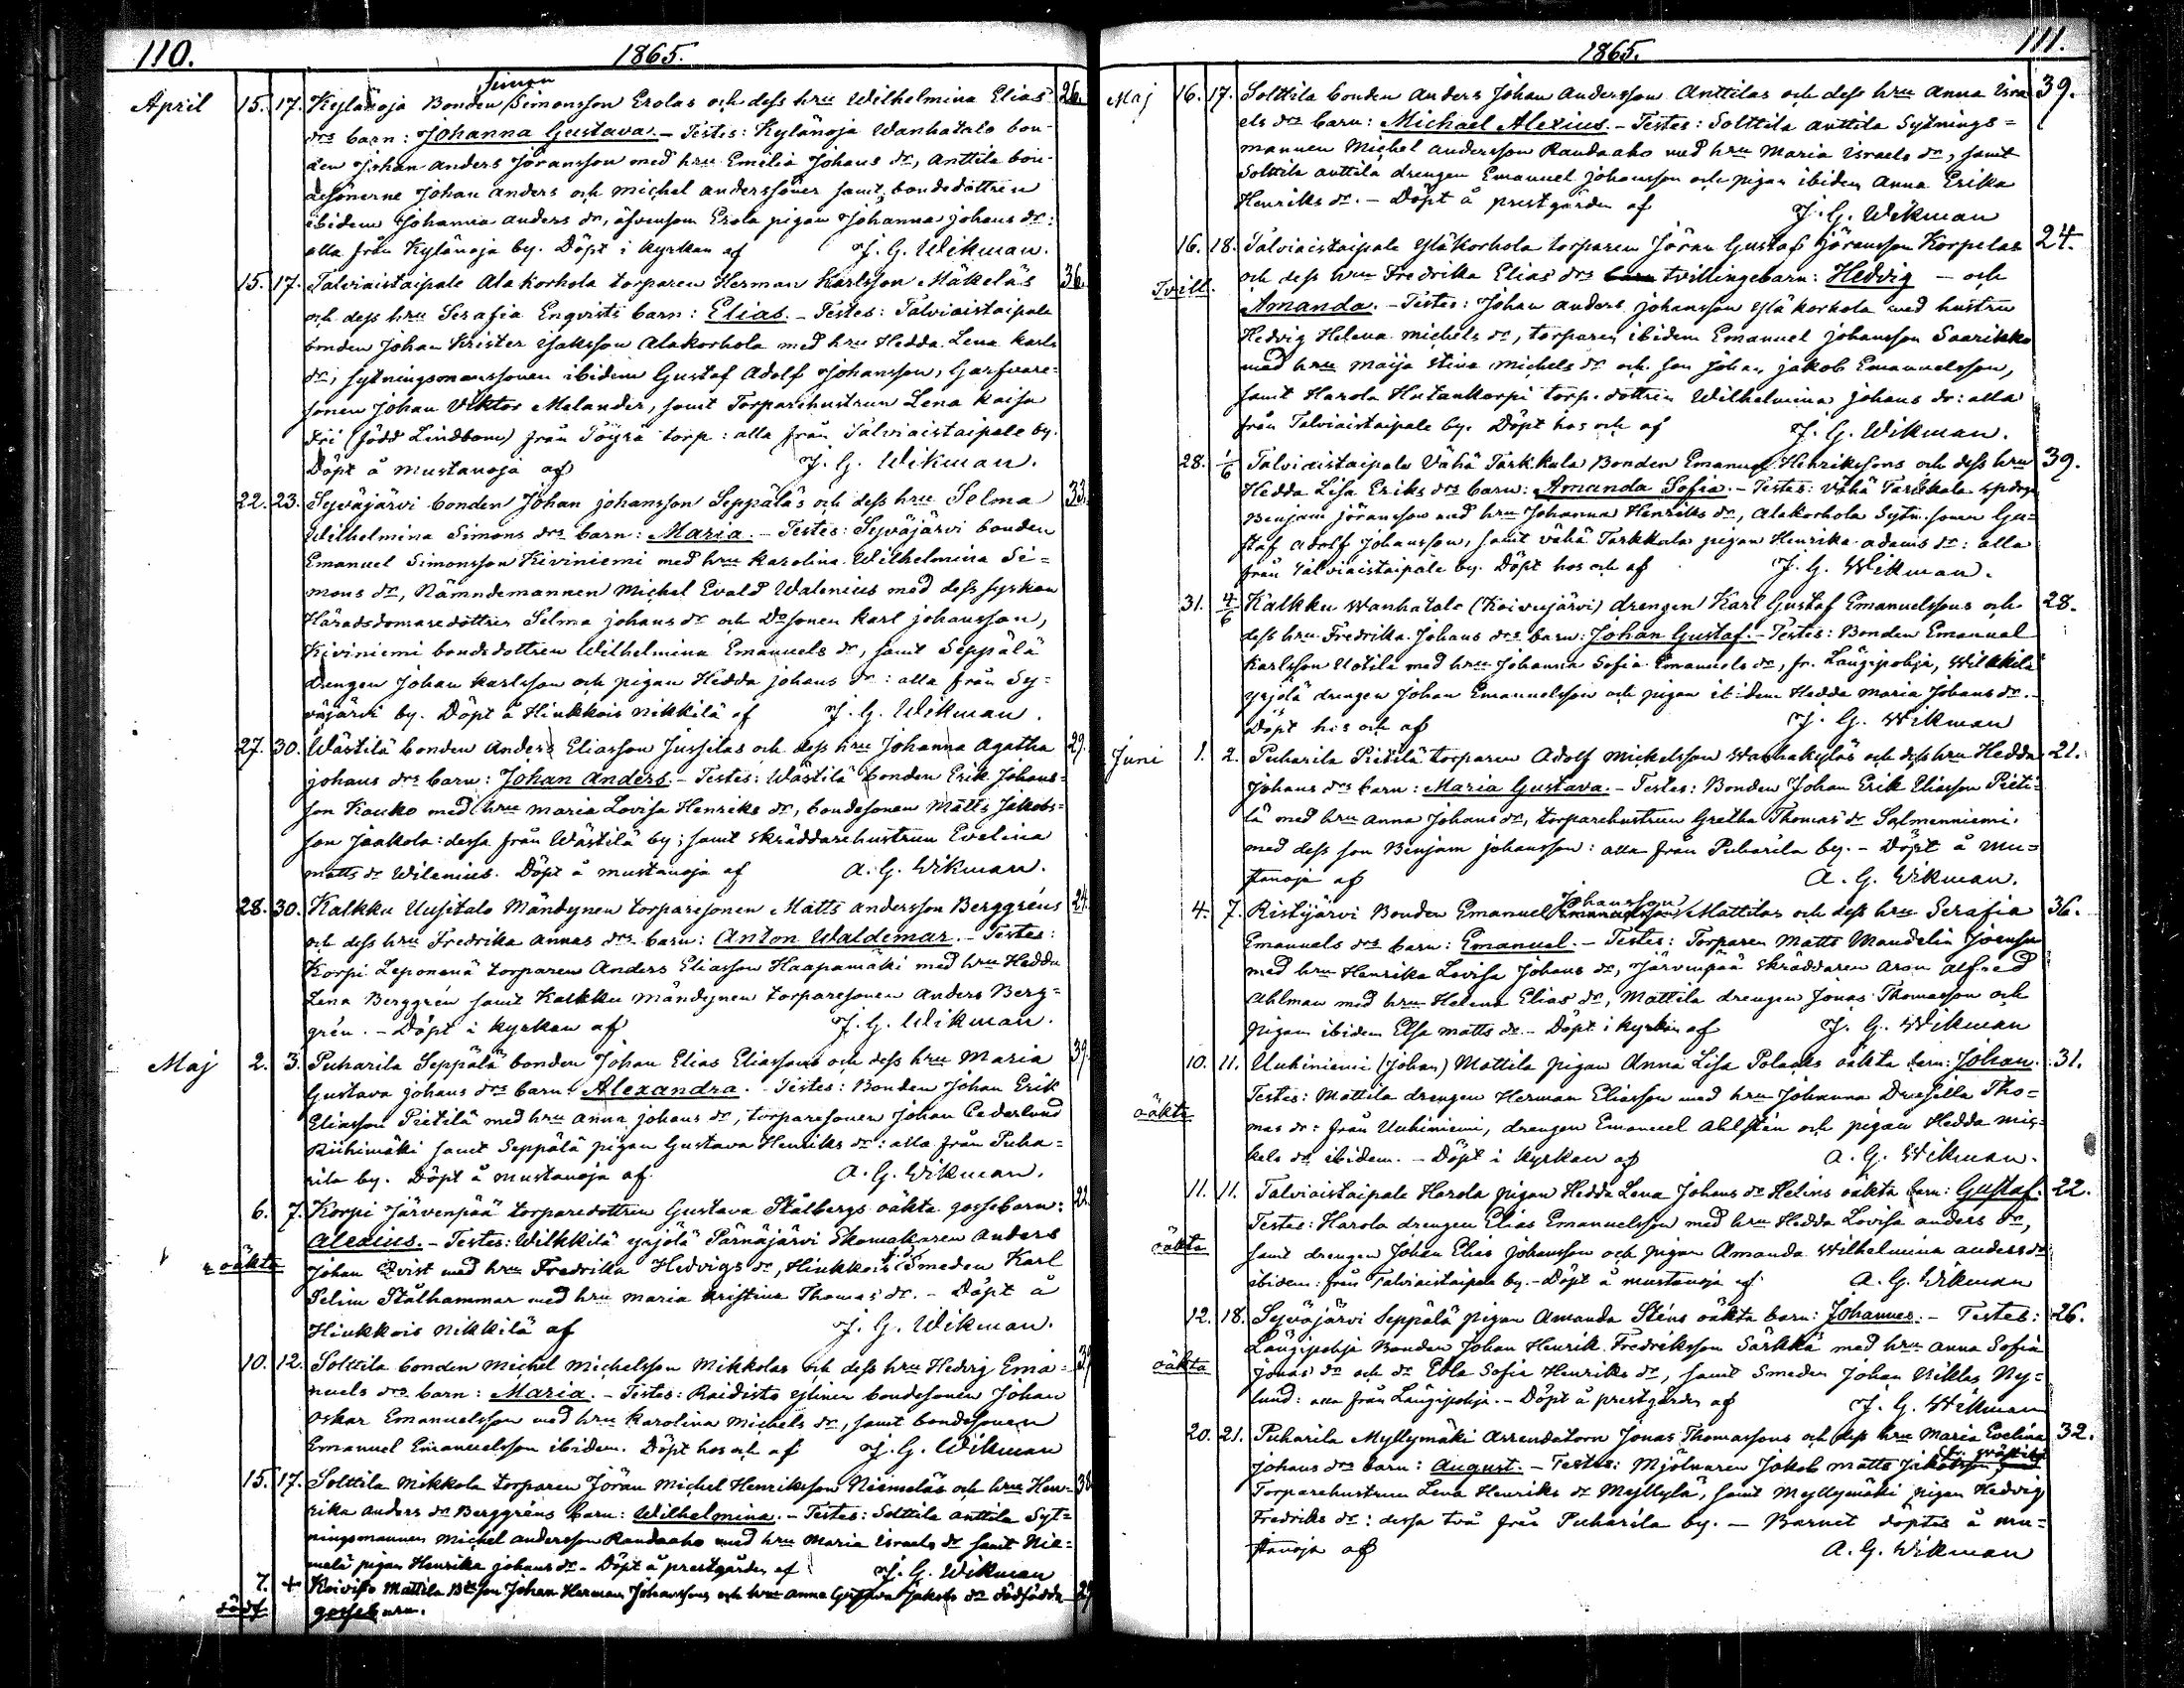 110.
1865.
Simon
April 15. 17. Kylänoja Bonden Simonsson Erolas och dess hru Wilhelmina Elias 26.
drs barn: Johanna Gustava. - Testes: Kylänoja Wanhatalo bon-
den Johan Anders Jöransson med hru Emilia Johans dr, Anttila bon-
desönerne Johan Anders och Michel Anderssöner samt bondedottren
ibidem Johanna Anders dr, äfvensom Erola pigan Johanna Johans dr:
alla från Kylänoja by. Döpt i kyrkan af J. G. Wikman.
15. 17. Talviaistaipale Alakorhola torparen Herman Karlsson Mäkeläs 36.
och dess hru Serafia Enqvists barn: Elias. - Testes: Talviaistaipale
bonden Johan Krister Isaksson Alakorhola med hru Hedda Lena Karls
dr, sytningsmanssonen ibidem Gustaf Adolf Johansson, Garfvare-
sonen Johan Viktor Melander, samt Torparehustrun Lena Kaisa
Fri (född Lindbom) från Töyrä torp: alla från Talviaistaipale by.
Döpt å Mustanoja af J. G. Wikman.
22. 23. Syväjärvi bonden Johan Johansson Seppäläs och dess hru Selma 33.
Wilhelmina Simons drs barn: Maria. - Testes: Syväjärvi bonden
Emanuel Simonsson Kiviniemi med hru Karolina Wilhelmina Si-
mons dr, Nämndemannen Michel Evald Walenius med dess syskon
Häradsdomaredottren Selma Johans dr och Dosonen Karl Johansson,
Kiviniemi bondedottren Wilhelmina Emanuels dr, samt Seppälä
drengen Johan Karlsson och pigan Hedda Johans dr: alla från Sy-
väjärvi by. Döpt å Hinkkois Nikkilä af J. G. Wikman.
27. 30. Wästilä bonden Anders Eliasson Jussilas och dess hru Johanna Agatha 29.
Johans drs barn: Johan Anders. - Testes: Wästilä bonden Erik Johans-
son Kauko med hru Maria Lovisa Henriks dr, bondesonen Matts Jakobs-
son Jaakola: dessa från Wästilä by; samt skräddarehustrun Evelina
Matts dr Wilenius. Döpt å Mustanoja af A. G. Wikman.
28. 30. Kalkku Uusitalo Mändynen torparesonen Matts Andersson Berggréns 24.
och dess hru Fredrika Annas drs barn: Anton Waldemar. - Testes:
Korpi Leponenä torparen Anders Eliasson Haapamäki med hru Hedda
Lena Berggrén samt Kalkku Mändynen torparesonen Anders Berg-
grén. - Döpt i kyrkan af J. G. Wikman.
Maj 2. 3. Puharila Seppälä bonden Johan Elias Eliassons och dess hru Maria 39.
Gustava Johans drs barn: Alexandra. - Testes: Bonden Johan Erik
Eliasson Pietilä med hru Anna Johans dr, torparesonen Johan Cederlund
Riihimäki samt Seppälä pigan Gustava Henriks dr: alla från Puha-
rila by. Döpt å Mustanoja af A. G. Wikman.
6. 7. Korpi Järvenpää torparedottren Gustava Stålbergs oäkta gossebarn: 22.
oäkta Alexius. - Testes: Wilkkilä Yrjölä Pärnäjärvi Skomakaren Anders
Johan Qvist med hru Fredrika Hedvigs dr, Hinkkois Smeden Karl
Selim Stålhammar med hru Maria Kristina Thomas dr. - Döpt å
Hinkkois Nikkilä af J. G. Wikman.
10. 12. Solttila bonden Michel Michelsson Mikkolas och dess hru Hedvig Ema-
nuels drs barn: Maria. - Testes: Raidisto Ylinen bondesonen Johan
Oskar Emanuelsson med hru Karolina Michels dr, samt bondesonen
Emanuel Emanuelsson ibidem. Döpt hos och af J. G. Wikman
15. 17. Solttila Mikkola torparen Jöran Michel Henriksson Niemeläs och hru Hen- 38
rika Anders dr Berggréns barn: Wilhelmina. - Testes: Solttila Anttila Syt-
ningsmannen Michel Andersson Randaaho med hru Maria Israels dr samt Nie-
melä pigan Henrika Johans dr. - Döpt å prestgården af J. G. Wikman
7. + Koivisto Mattila Bdeson Johan Herman Johanssons och hru Anna Gustava Jakobs dr dödfödda 29
dödf. gossebarn.
1865.
111.
Maj 16. 17. Solttila bonden Anders Johan Andersson Anttilas och dess hru Anna Isra 39.
els drs barn: Michael Alexius. - Testes: Solttila Anttila Sytnings-
mannen Michel Andersson Randaaho med hru Maria Israels dr, samt
Solttila Anttila drengen Emanuel Johansson och pigan ibidem Anna Erika
Henriks dr. - Döpt å prestgården af J. G. Wikman
16. 18. Talviaistaipale Yläkorhola torparen Jöran Gustaf Jöransson Korpelas 24.
Tvill. och dess hru Fredrika Elias drs barn tvillingebarn: Hedvig - och
Amanda. - Testes: Johan Anders Johansson Yläkorhola med hustru
Hedvig Helena Michels dr, torparen ibidem Emanuel Johansson Saarikko
med hru Maija Stina Michels dr och son Johan Jakob Emanuelsson,
samt Harola Hutankorpi torp. dottren Wilhelmina Johans dr: alla
från Talviaistaipale by. Döpt hos och af J. G. Wikman.
28. 1/6 Talviaistaipale Vähä Tarkkala Bonden Emanuel Henrikssons och dess hru 39.
Hedda Lisa Eriks drs barn: Amanda Sofia. - Testes: Vähä Tarkkala
Benjam Jöransson med hru Johanna Henriks dr, Alakorhola Sytn. sonen Gu-
staf Adolf Johansson, samt Vähä Tarkkala pigan Henrika Adams dr: alla
från Talviaistaipale by. Döpt hos och af J. G. Wikman.
31. 4/6 Kalkku Wanhatalo (Koivujärvi) drengen Karl Gustaf Emanuelssons och 28.
dess hru Fredrika Johans drs barn: Johan Gustaf. - Testes: Bonden Emanuel
Karlsson Uotila med hru Johanna Sofia Emanuels dr, fr. Längipohja, Wilkkilä
Yrjölä drengen Johan Emanuelsson och pigan ibidem Hedda Maria Johans dr.
Döpt hos och af J. G. Wikman
Juni 1. 2. Puharila Pietilä torparen Adolf Mickelsson Wanhakyläs och dess hru Hedda 21.
Johans drs barn: Maria Gustava. - Testes: Bonden Johan Erik Eliasson Pieti-
lä med hru Anna Johans dr, torparehustrun Gretha Thomas dr Salmenniemi
med dess son Benjam Johansson: alla från Puharila by. - Döpt å Mu-
stanoja af A. G. Wikman.
Johansson
4. 7. Ristijärvi Bonden Emanuel Emanuelsson Mattilas och dess hru Serafia 36.
Emanuels drs barn: Emanuel. - Testes: Torparen Matts Mandelin
med hru Henrika Lovisa Johans dr, Järvenpää skräddaren Aron Alfred
Ahlman med hru Helena Elias dr, Mattila drengen Jonas Thomasson och
pigan ibidem Elsa Matts dr. - Döpt i kyrkan af J. G. Wikman
10. 11. Unhiniemi (Johan) Mattila pigan Anna Lisa Polacks oäkta barn: Johan. 31.
oäkta Testes: Mattila drengen Herman Eliasson med hru Johanna Drusilla Tho-
mas dr: från Unhiniemi, drengen Emanuel Ahlstén och pigan Hedda Mic-
kels dr ibidem. - Döpt i kyrkan af A. G. Wikman.
11. 11. Talviaistaipale Harola pigan Hedda Lena Johans dr Helins oäkta barn: Gustaf. 22.
Testes: Harola drengen Elias Emanuelsson med hru Hedda Lovisa Anders dr,
oäkta samt drengen Johan Elias Johansson och pigan Amanda Wilhelmina Anders dr
ibidem: från Talviaistaipale by. - Döpt å Mustanoja af A. G. Wikman
12. 18. Syväjärvi Seppälä pigan Amanda Sténs oäkta barn: Johannes. - Testes: 26.
Längipohja Bonden Johan Henrik Fredriksson Särkkä med hru Anna Sofia
oäkta Jonas dr och dr Ebla Sofia Henriks dr, samt Smeden Johan Niklas Ny-
lund: alla från Längipohja. - Döpt å prestgården af J. G. Wikman
20. 21. Puharila Myllymäki Arrendatorn Jonas Thomassons och dess hru Maria Evelina 32.
Johans drs barn: August. - Testes: Mjölnaren Jakob Matts Jakobsson
Torparehustrun Lena Henriks dr Myllylä, samt Myllymäki pigan Hedvig
Fredriks dr: dessa två från Puharila by. - Barnet döptes å Mu-
stanoja af A. G. Wikman